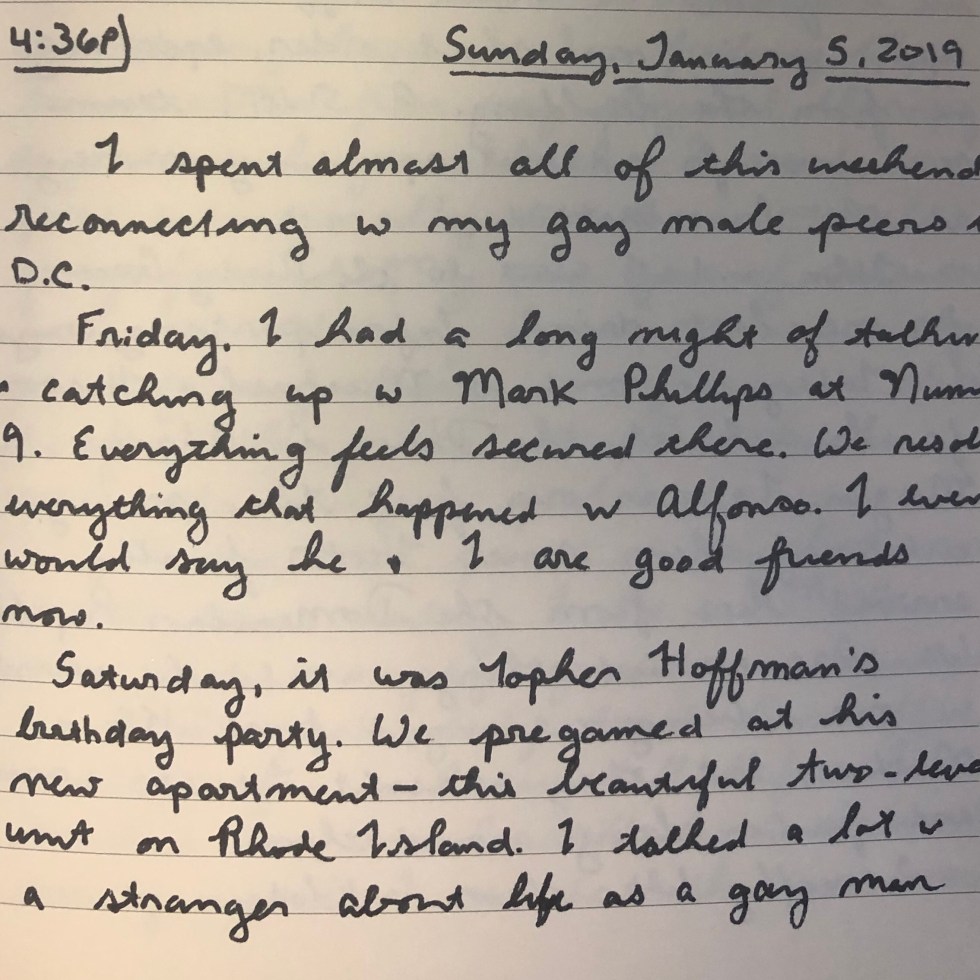 4:36P)
Sunday, January 5, 2019
I spent almost all of this weekend
reconnecting w my gay male peers
D.C.
Friday. I had a long night of
catching up w Mark Phillips at
9. Everything feels secured there. We
everything that happened w Alfonso. I
would say he + I are good friends
now.
Saturday, it was Topher Hoffman's
birthday party. We pregamed at his
new apartment - this beautiful two-
unit on Rhode Island. I talked a lot w
a stranger about life as a gay man